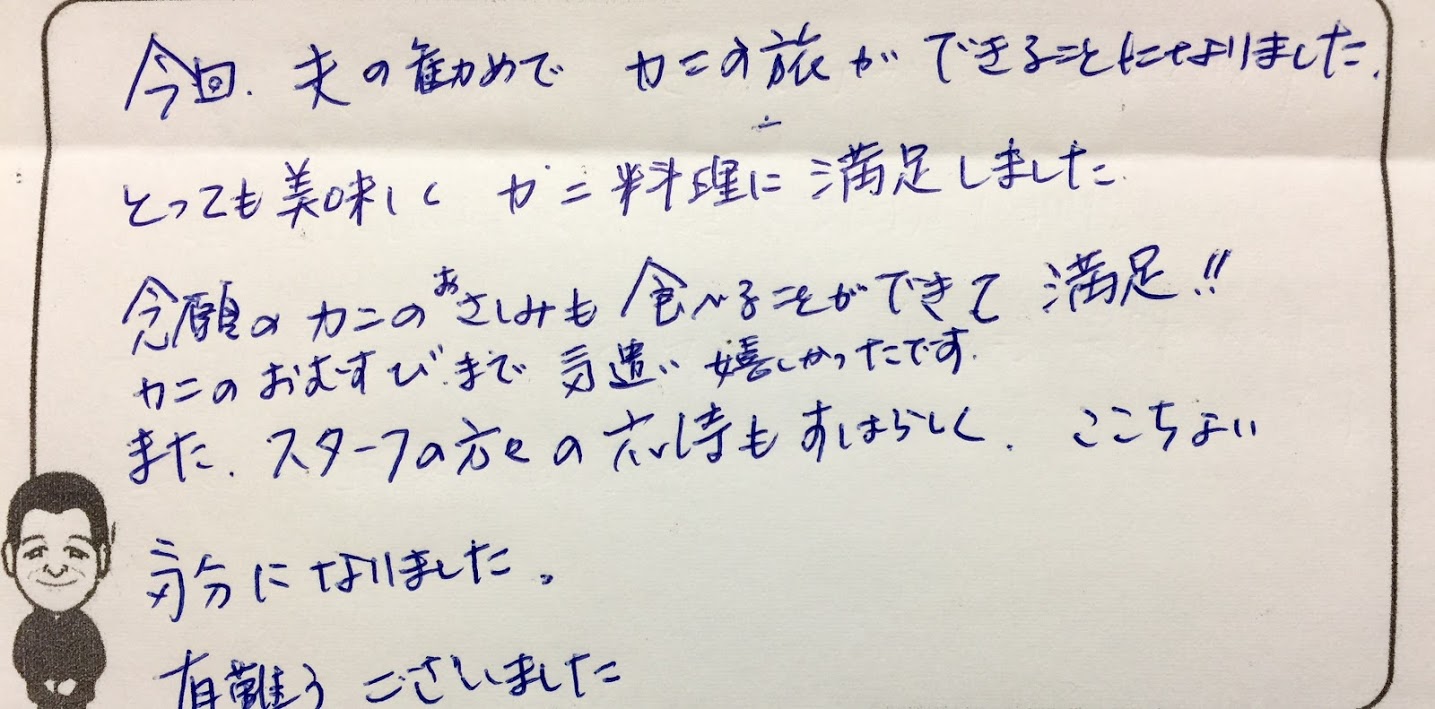 今回、夫の勧めで カニの旅ができることになりました。
とっても美味しく カニ料理に満足しました
念願のカニのおさしみも食べることができて 満足!!
カニのおむすびまで 気遣い嬉しかったです。
また、スタッフの方々の応待もすばらしく、ここちよい
気分になりました。
有難うございました